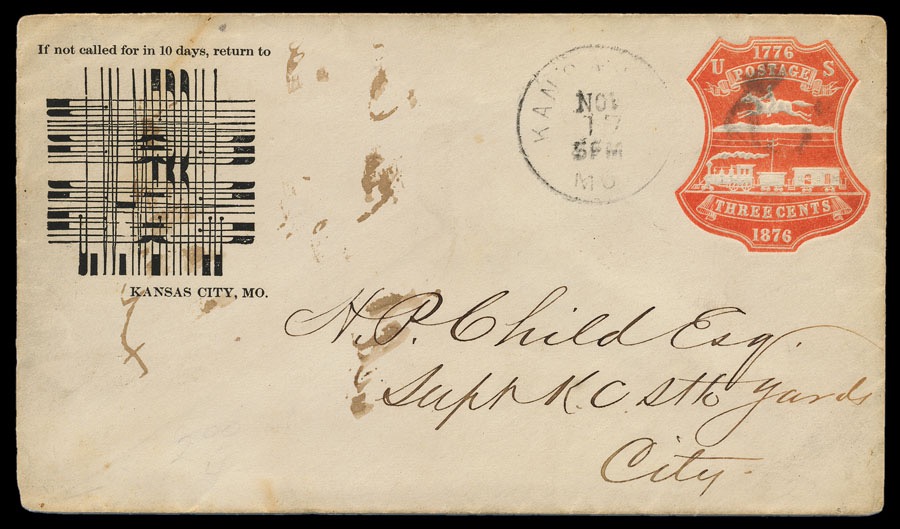 If not called for in 10 days, return to
KANSAS CITY, MO.
KAN
NOV
17
5PM
MO
1776
U S
POSTAGE
THREE CENTS
1876
H. P. Child Esq.
Supt K. C Stk Yards
City.